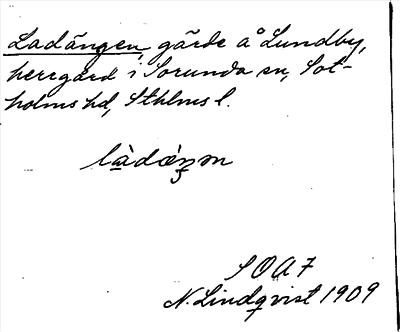 Ladängen, gärde å Lundby,
herrgård i Sorunda sn, Sot-
holms hd, Sthlms l.
làdǽŋən
SOA 7
N. Lindqvist 1909